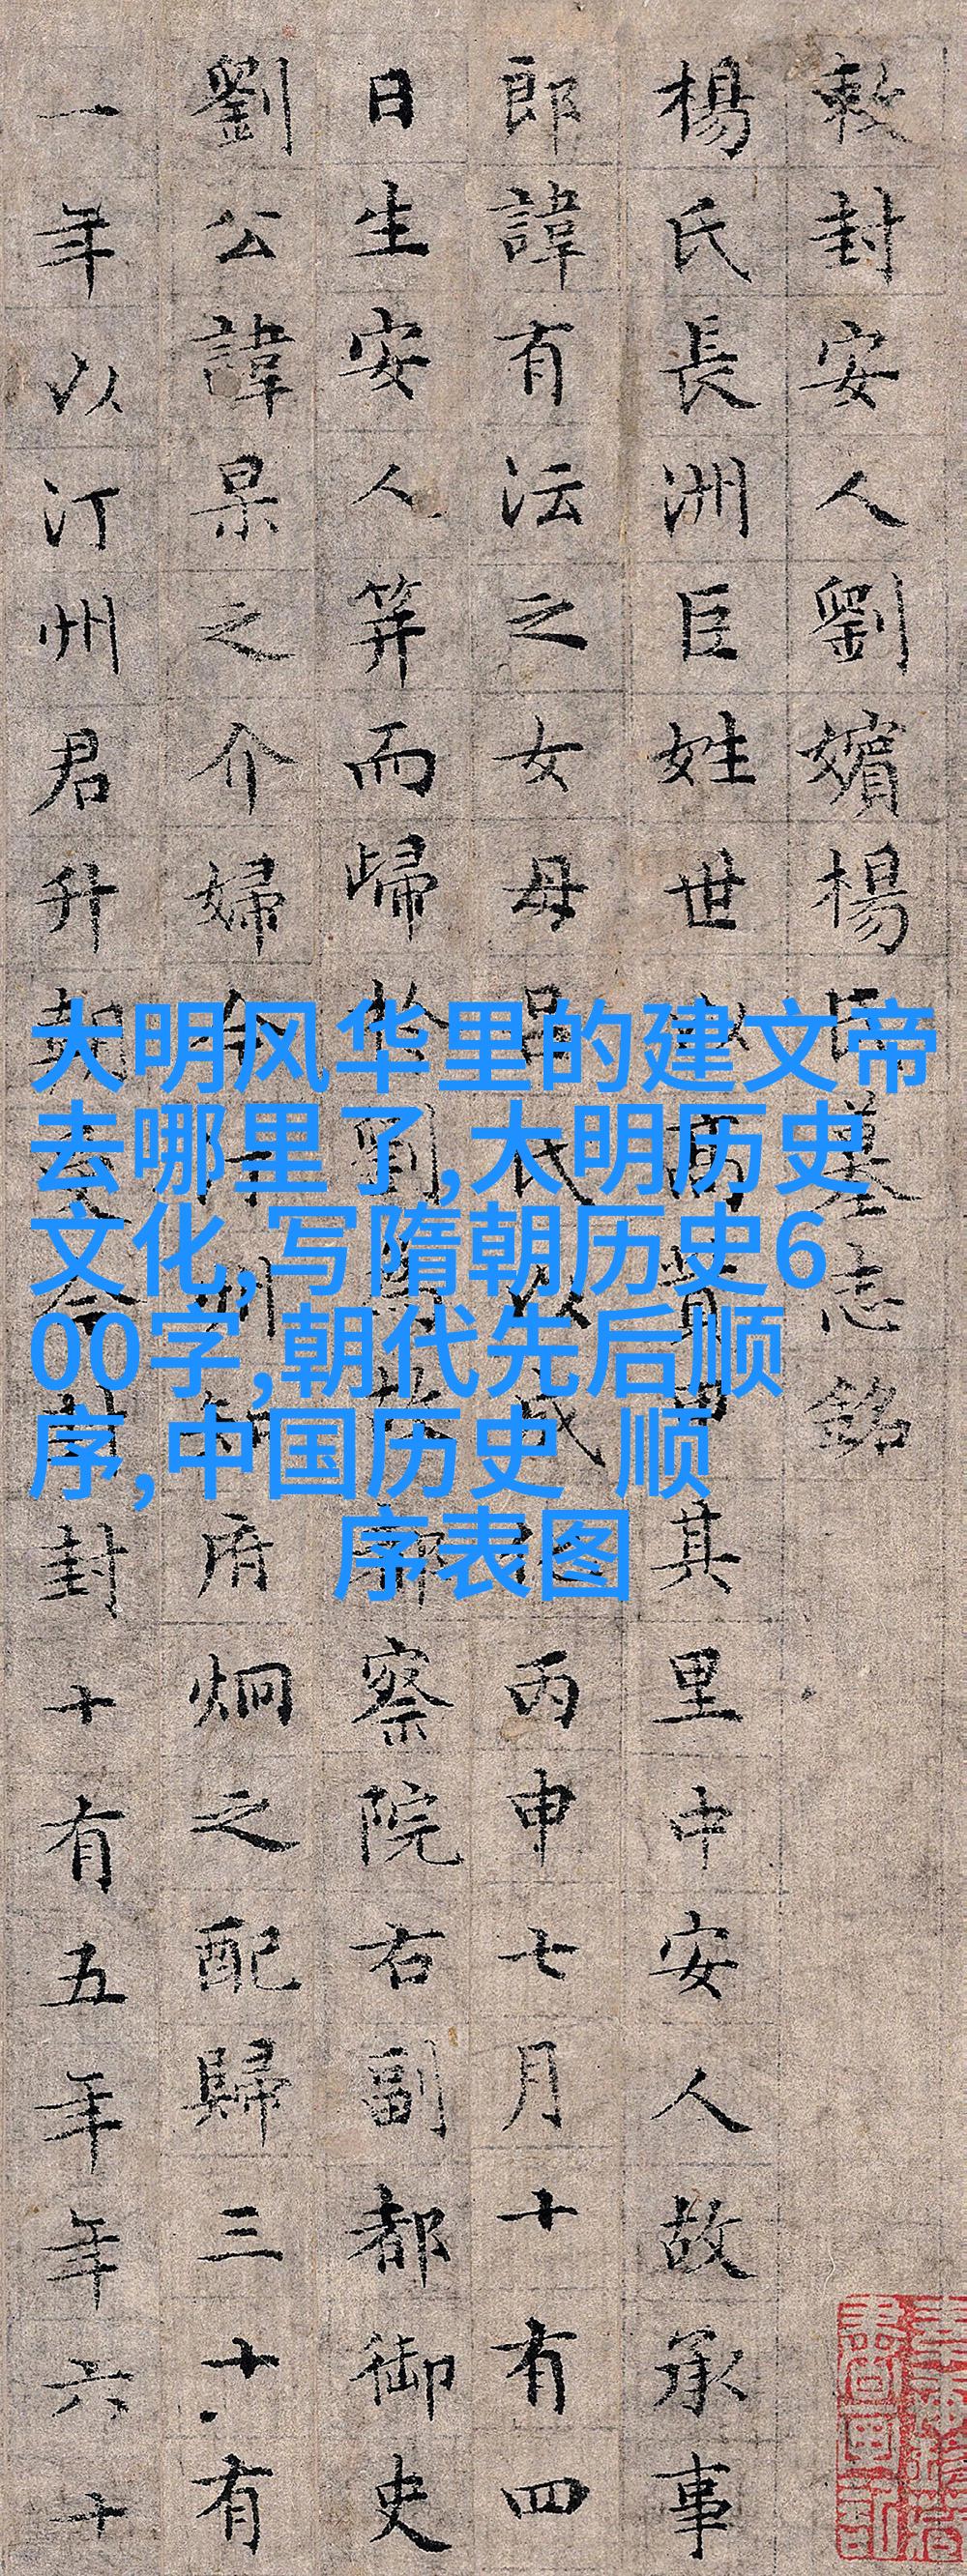 敕封安人劉嬪楊氏墓志銘
楊氏長洲巨姓世以高貲甲其里中安人故承事
郎諱有沄之女母呂氏以成化丙申七月十有四
日生安人笄而歸於劉為故都察院右副都御史
劉公諱杲之介婦今汀州知府炯之配歸三十有
一年以汀州君升今封封十有五年年六十
大明风华里的建文帝
去哪里了,大明历史
文化,写隋朝历史6
00字,朝代先后顺
序,中国历史 顺
序表图